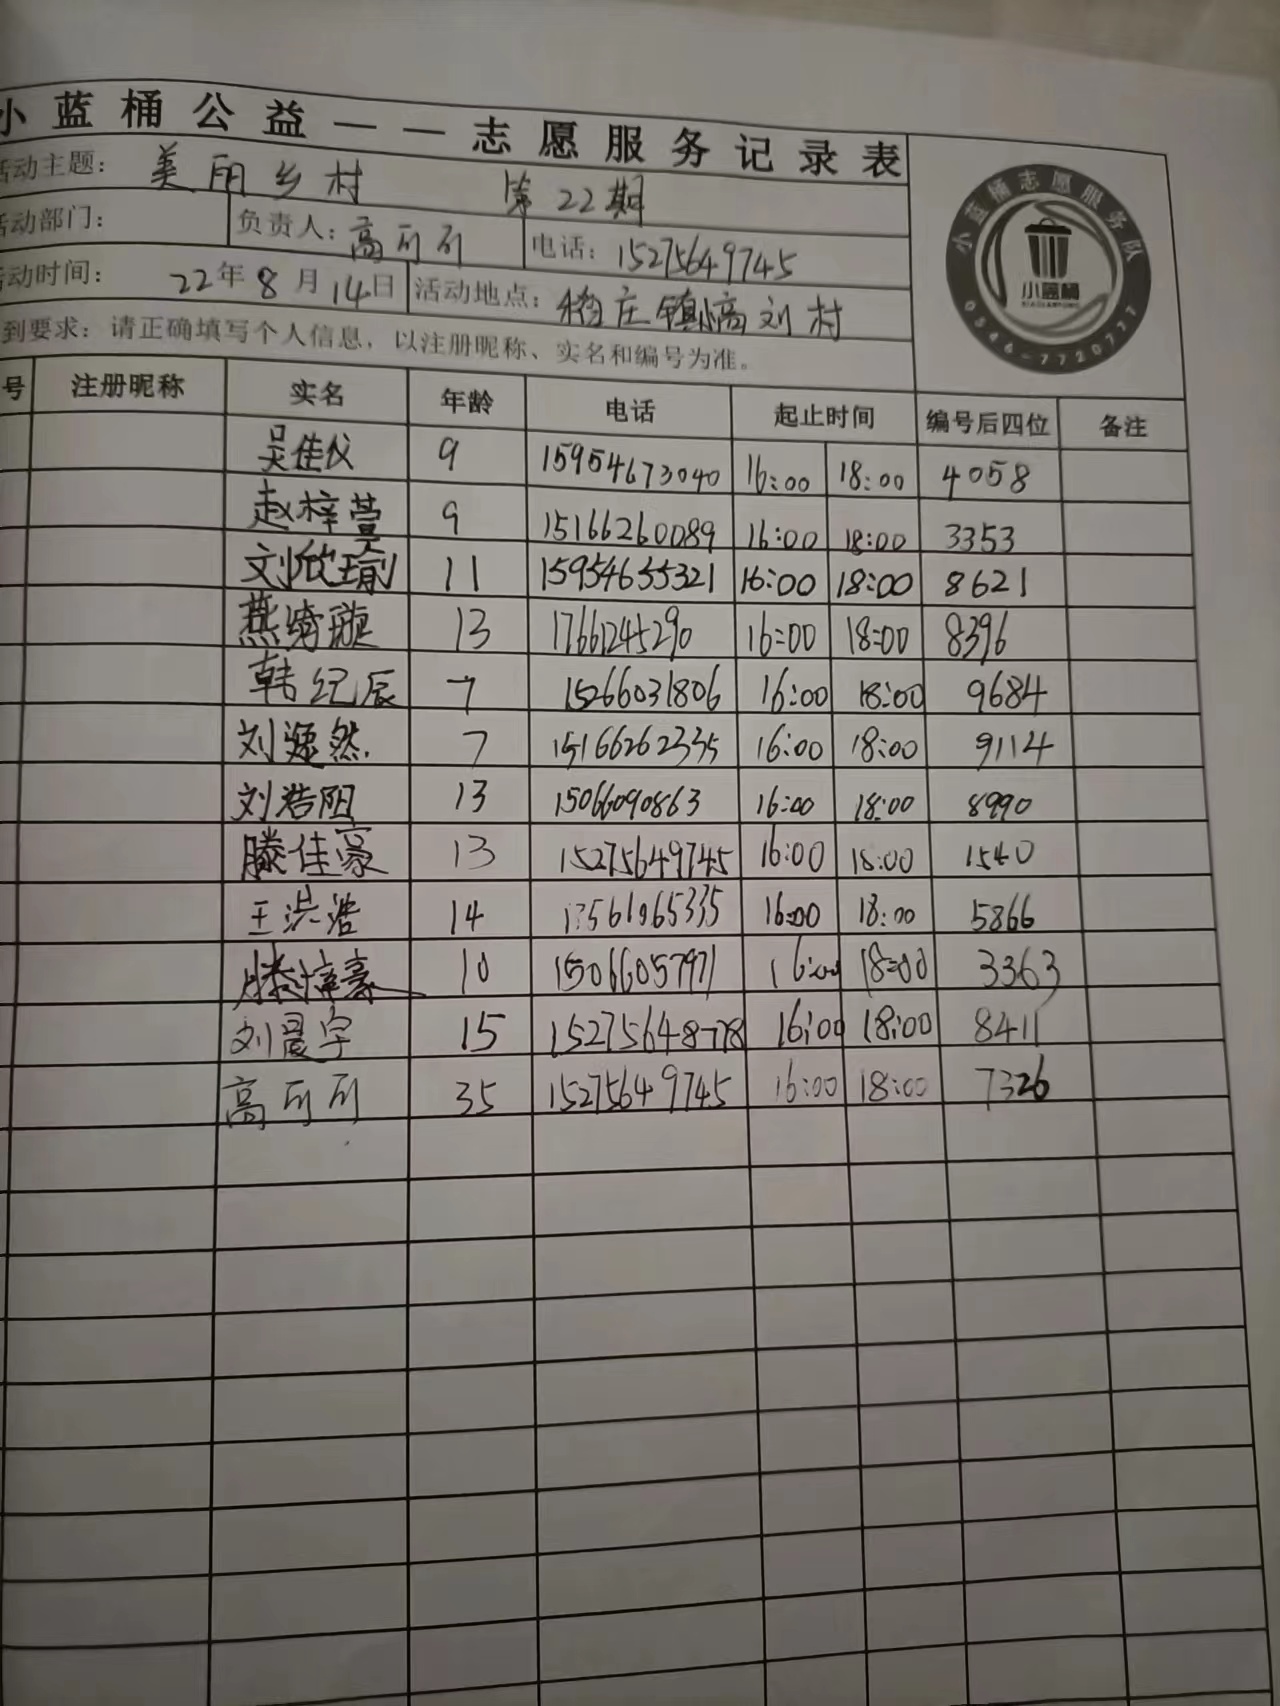 小蓝桶公益——志愿服务记录表
活动主题： 美丽乡村 第22期
活动部门： 负责人：高可可 电话：15275649745
活动时间： 22年8月14日 活动地点： 镇高刘村
到要求：请正确填写个人信息，以注册昵称、实名和编号为准。
小蓝桶志愿服务队
小蓝桶
XIAOLANTONG
0546-7720777
号 注册昵称 实名 年龄 电话 起止时间 编号后四位 备注
吴佳仪 9 15954673040 16:00 18:00 4058
赵梓萱 9 15166260089 16:00 18:00 3353
刘欣瑜 11 15954655321 16:00 18:00 8621
燕绮璇 13 17661245290 16:00 18:00 8396
韩纪辰 7 15266031806 16:00 18:00 9684
刘 然 7 15166262335 16:00 18:00 9114
刘浩阳 13 15066090863 16:00 18:00 8990
滕佳豪 13 15275649745 16:00 18:00 1540
王洪浩 14 16:00 18:00 5866
滕梓豪 10 15066057971 16:00 18:00 3363
刘晨宇 15 15275648778 16:00 18:00 8411
高可可 35 15275649745 16:00 18:00 7326